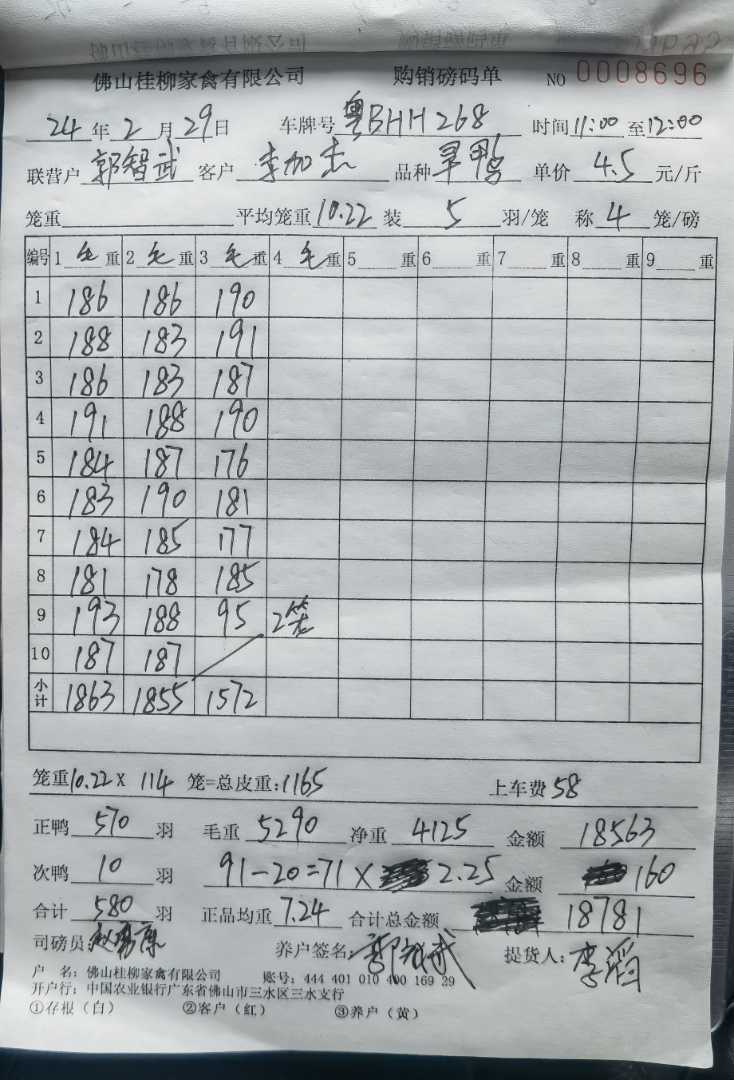 佛山桂柳家禽有限公司 购销磅码单 NO 0008696
24年2月29日 车牌号 粤BHH268 时间11:00至12:00
联营户 郭智武 客户 李加志 品种 旱鸭 单价 4.5 元/斤
笼重 平均笼重 10.22 装 5 羽/笼 称 4 笼/磅
编号 1 毛 重 2 毛 重 3 毛 重 4 毛 重 5 重 6 重 7 重 8 重 9 重
1 186 186 190
2 188 183 191
3 186 183 187
4 191 188 190
5 184 187 176
6 183 190 181
7 184 185 177
8 181 178 185
9 193 188 95 2笼
10 187 187
小计 1863 1855 1572
笼重10.22 x 114 笼=总皮重:1165 上车费 58
正鸭 570 羽 毛重 5290 净重 4125 金额 18563
次鸭 10 羽 91-20=71 x 2.25 金额 160
合计 580 羽 正品均重 7.24 合计总金额 18781
司磅员 养户签名: 郭智武 提货人: 李滔
户 名: 佛山桂柳家禽有限公司 账号: 444 401 010 400 169 29
开户行: 中国农业银行广东省佛山市三水区三水支行
①存根（白） ②客户（红） ③养户（黄）